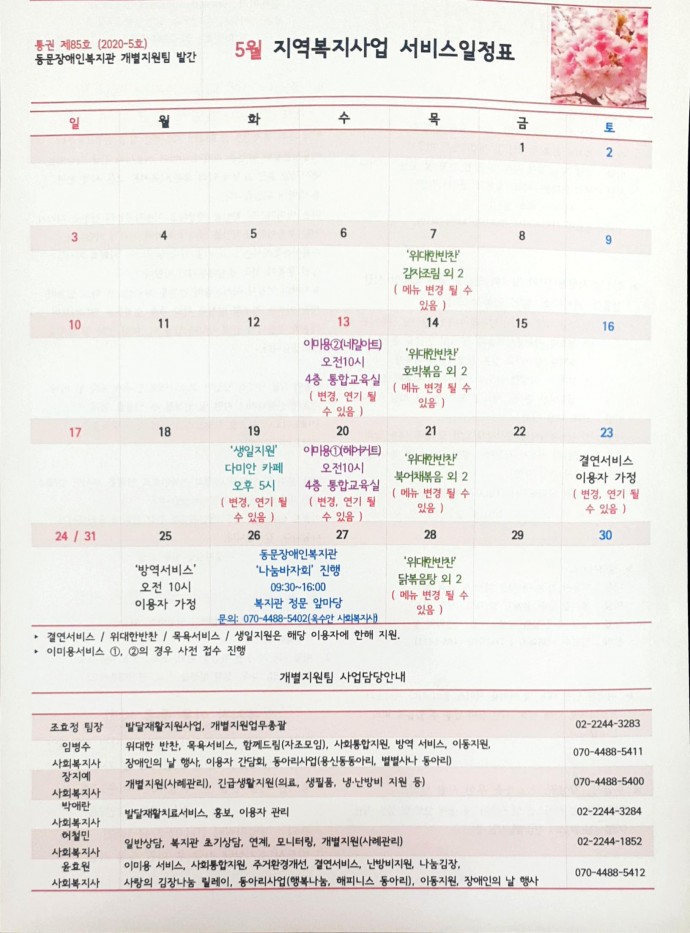 통권 제85호 (2020-5호)
동문장애인복지관 개별지원팀 발간
5월 지역복지사업 서비스일정표
일 월 화 수 목 금 토
1 2
3 4 5 6 7 8 9
'위대한반찬'
감자조림 외 2
( 메뉴 변경 될 수
있음 )
10 11 12 13 14 15 16
이미용②(네일아트)
오전10시
4층 통합교육실
( 변경, 연기 될
수 있음 )
'위대한반찬'
호박볶음 외 2
( 메뉴 변경 될 수
있음 )
17 18 19 20 21 22 23
'생일지원'
다미안 카페
오후 5시
( 변경, 연기 될
수 있음 )
이미용①(헤어커트)
오전10시
4층 통합교육실
( 변경, 연기 될
수 있음 )
'위대한반찬'
북어채볶음 외 2
( 메뉴 변경 될 수
있음 )
결연서비스
이용자 가정
( 변경, 연기 될
수 있음 )
24 / 31 25 26 27 28 29 30
'방역서비스'
오전 10시
이용자 가정
동문장애인복지관
'나눔바자회' 진행
09:30~16:00
복지관 정문 앞마당
문의: 070-4488-5402(옥수안 사회복지사)
'위대한반찬'
닭볶음탕 외 2
( 메뉴 변경 될 수
있음 )
▸ 결연서비스 / 위대한반찬 / 목욕서비스 / 생일지원은 해당 이용자에 한해 지원.
▸ 이미용서비스 ①, ②의 경우 사전 접수 진행
개별지원팀 사업담당안내
조효정 팀장 발달재활지원사업, 개별지원업무총괄 02-2244-3283
임병수
사회복지사
위대한 반찬, 목욕서비스, 함께드림(자조모임), 사회통합지원, 방역 서비스, 이동지원,
장애인의 날 행사, 이용자 간담회, 동아리사업(용신동동아리, 별별사나 동아리)
070-4488-5411
장지예
사회복지사
개별지원(사례관리), 긴급생활지원(의료, 생필품, 냉·난방비 지원 등)
070-4488-5400
박애란
사회복지사
발달재활치료서비스, 홍보, 이용자 관리
02-2244-3284
허철민
사회복지사
일반상담, 복지관 초기상담, 연계, 모니터링, 개별지원(사례관리)
02-2244-1852
윤효원
사회복지사
이미용 서비스, 사회통합지원, 주거환경개선, 결연서비스, 난방비지원, 나눔김장,
사랑의 김장나눔 릴레이, 동아리사업(행복나눔, 해피니스 동아리), 이동지원, 장애인의 날 행사
070-4488-5412